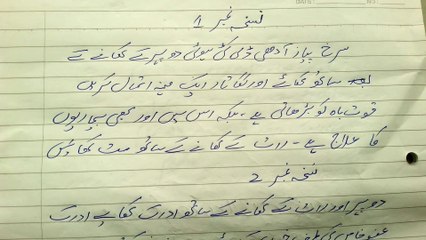 نسخہ نمبر 1
سرخ پیاز آدھی ڈلی کٹی ہوئی دوپہر کے کھانے کے
بعد ساتھ کھائے اور لگاتار ایک مہینہ استمال کریں
قوت باہ کو بڑھاتی ہے۔ بلکہ اس میں اور بھی بیماریوں
کا علاج ہے۔ رات کے کھانے کے ساتھ مت کھائیں
نسخہ نمبر 2
دوپہر اور رات کے کھانے کے ساتھ ادرک کھایے ادرک
کی
DATE:
NO.